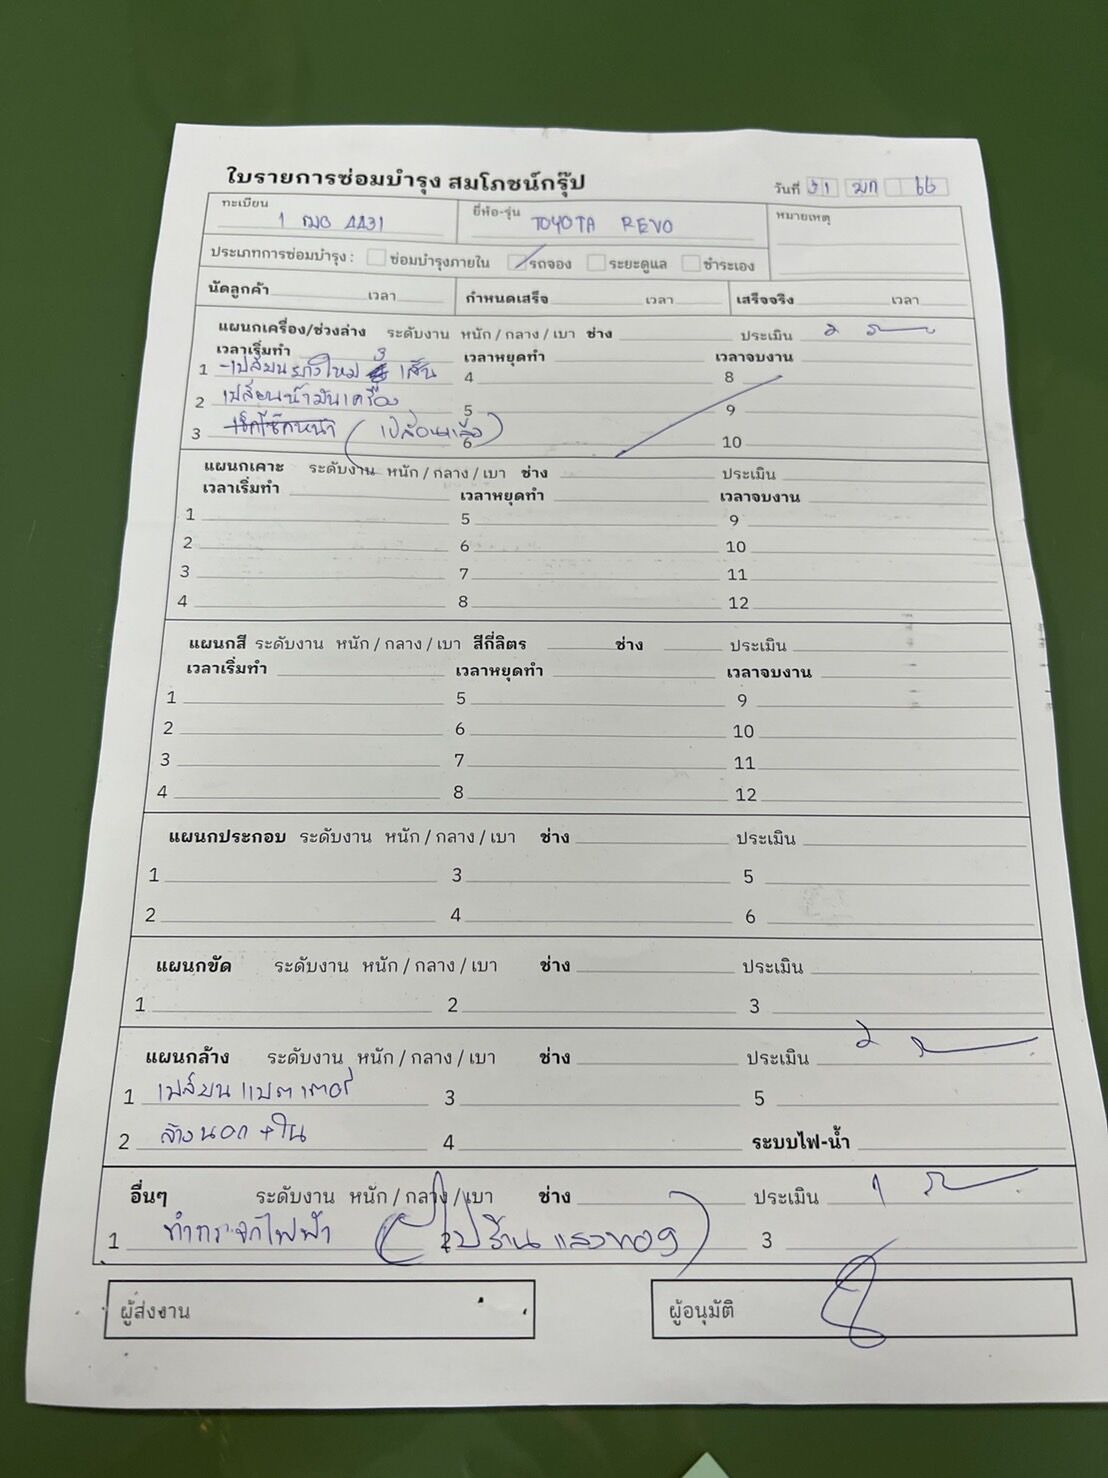 ใบรายการซ่อมบำรุง สมโภชน์กรุ๊ป
วันที่ 31 มค 66
ทะเบียน 1 ฒฮ 4431 ยี่ห้อ-รุ่น TOYOTA REVO หมายเหตุ
ประเภทการซ่อมบำรุง : ซ่อมบำรุงภายใน รถจอง ระยะดูแล ชำระเอง
นัดลูกค้า เวลา กำหนดเสร็จ เวลา เสร็จจริง เวลา
แผนกเครื่อง/ช่วงล่าง ระดับงาน หนัก / กลาง / เบา ช่าง ประเมิน 2
เวลาเริ่มทำ เวลาหยุดทำ เวลาจบงาน
1 -เปลี่ยนยางใหม่ 3 เส้น 4 8
2 เปลี่ยนน้ำมันเครื่อง 5 9
3 เช็คโช้คหน้า (เปลี่ยนแล้ว) 6 10
แผนกเคาะ ระดับงาน หนัก / กลาง / เบา ช่าง ประเมิน
เวลาเริ่มทำ เวลาหยุดทำ เวลาจบงาน
1 5 9
2 6 10
3 7 11
4 8 12
แผนกสี ระดับงาน หนัก / กลาง / เบา สีกี่ลิตร ช่าง ประเมิน
เวลาเริ่มทำ เวลาหยุดทำ เวลาจบงาน
1 5 9
2 6 10
3 7 11
4 8 12
แผนกประกอบ ระดับงาน หนัก / กลาง / เบา ช่าง ประเมิน
1 3 5
2 4 6
แผนกขัด ระดับงาน หนัก / กลาง / เบา ช่าง ประเมิน
1 2 3
แผนกล้าง ระดับงาน หนัก / กลาง / เบา ช่าง ประเมิน 2
1 เปลี่ยนแบตเตอรี่ 3 5
2 ล้างนอก+ใน 4 ระบบไฟ-น้ำ
อื่นๆ ระดับงาน หนัก / กลาง / เบา ช่าง ประเมิน 1
1 ทำกระจกไฟฟ้า 2 (ไปร้านแสงทอง) 3
ผู้ส่งงาน ผู้อนุมัติ